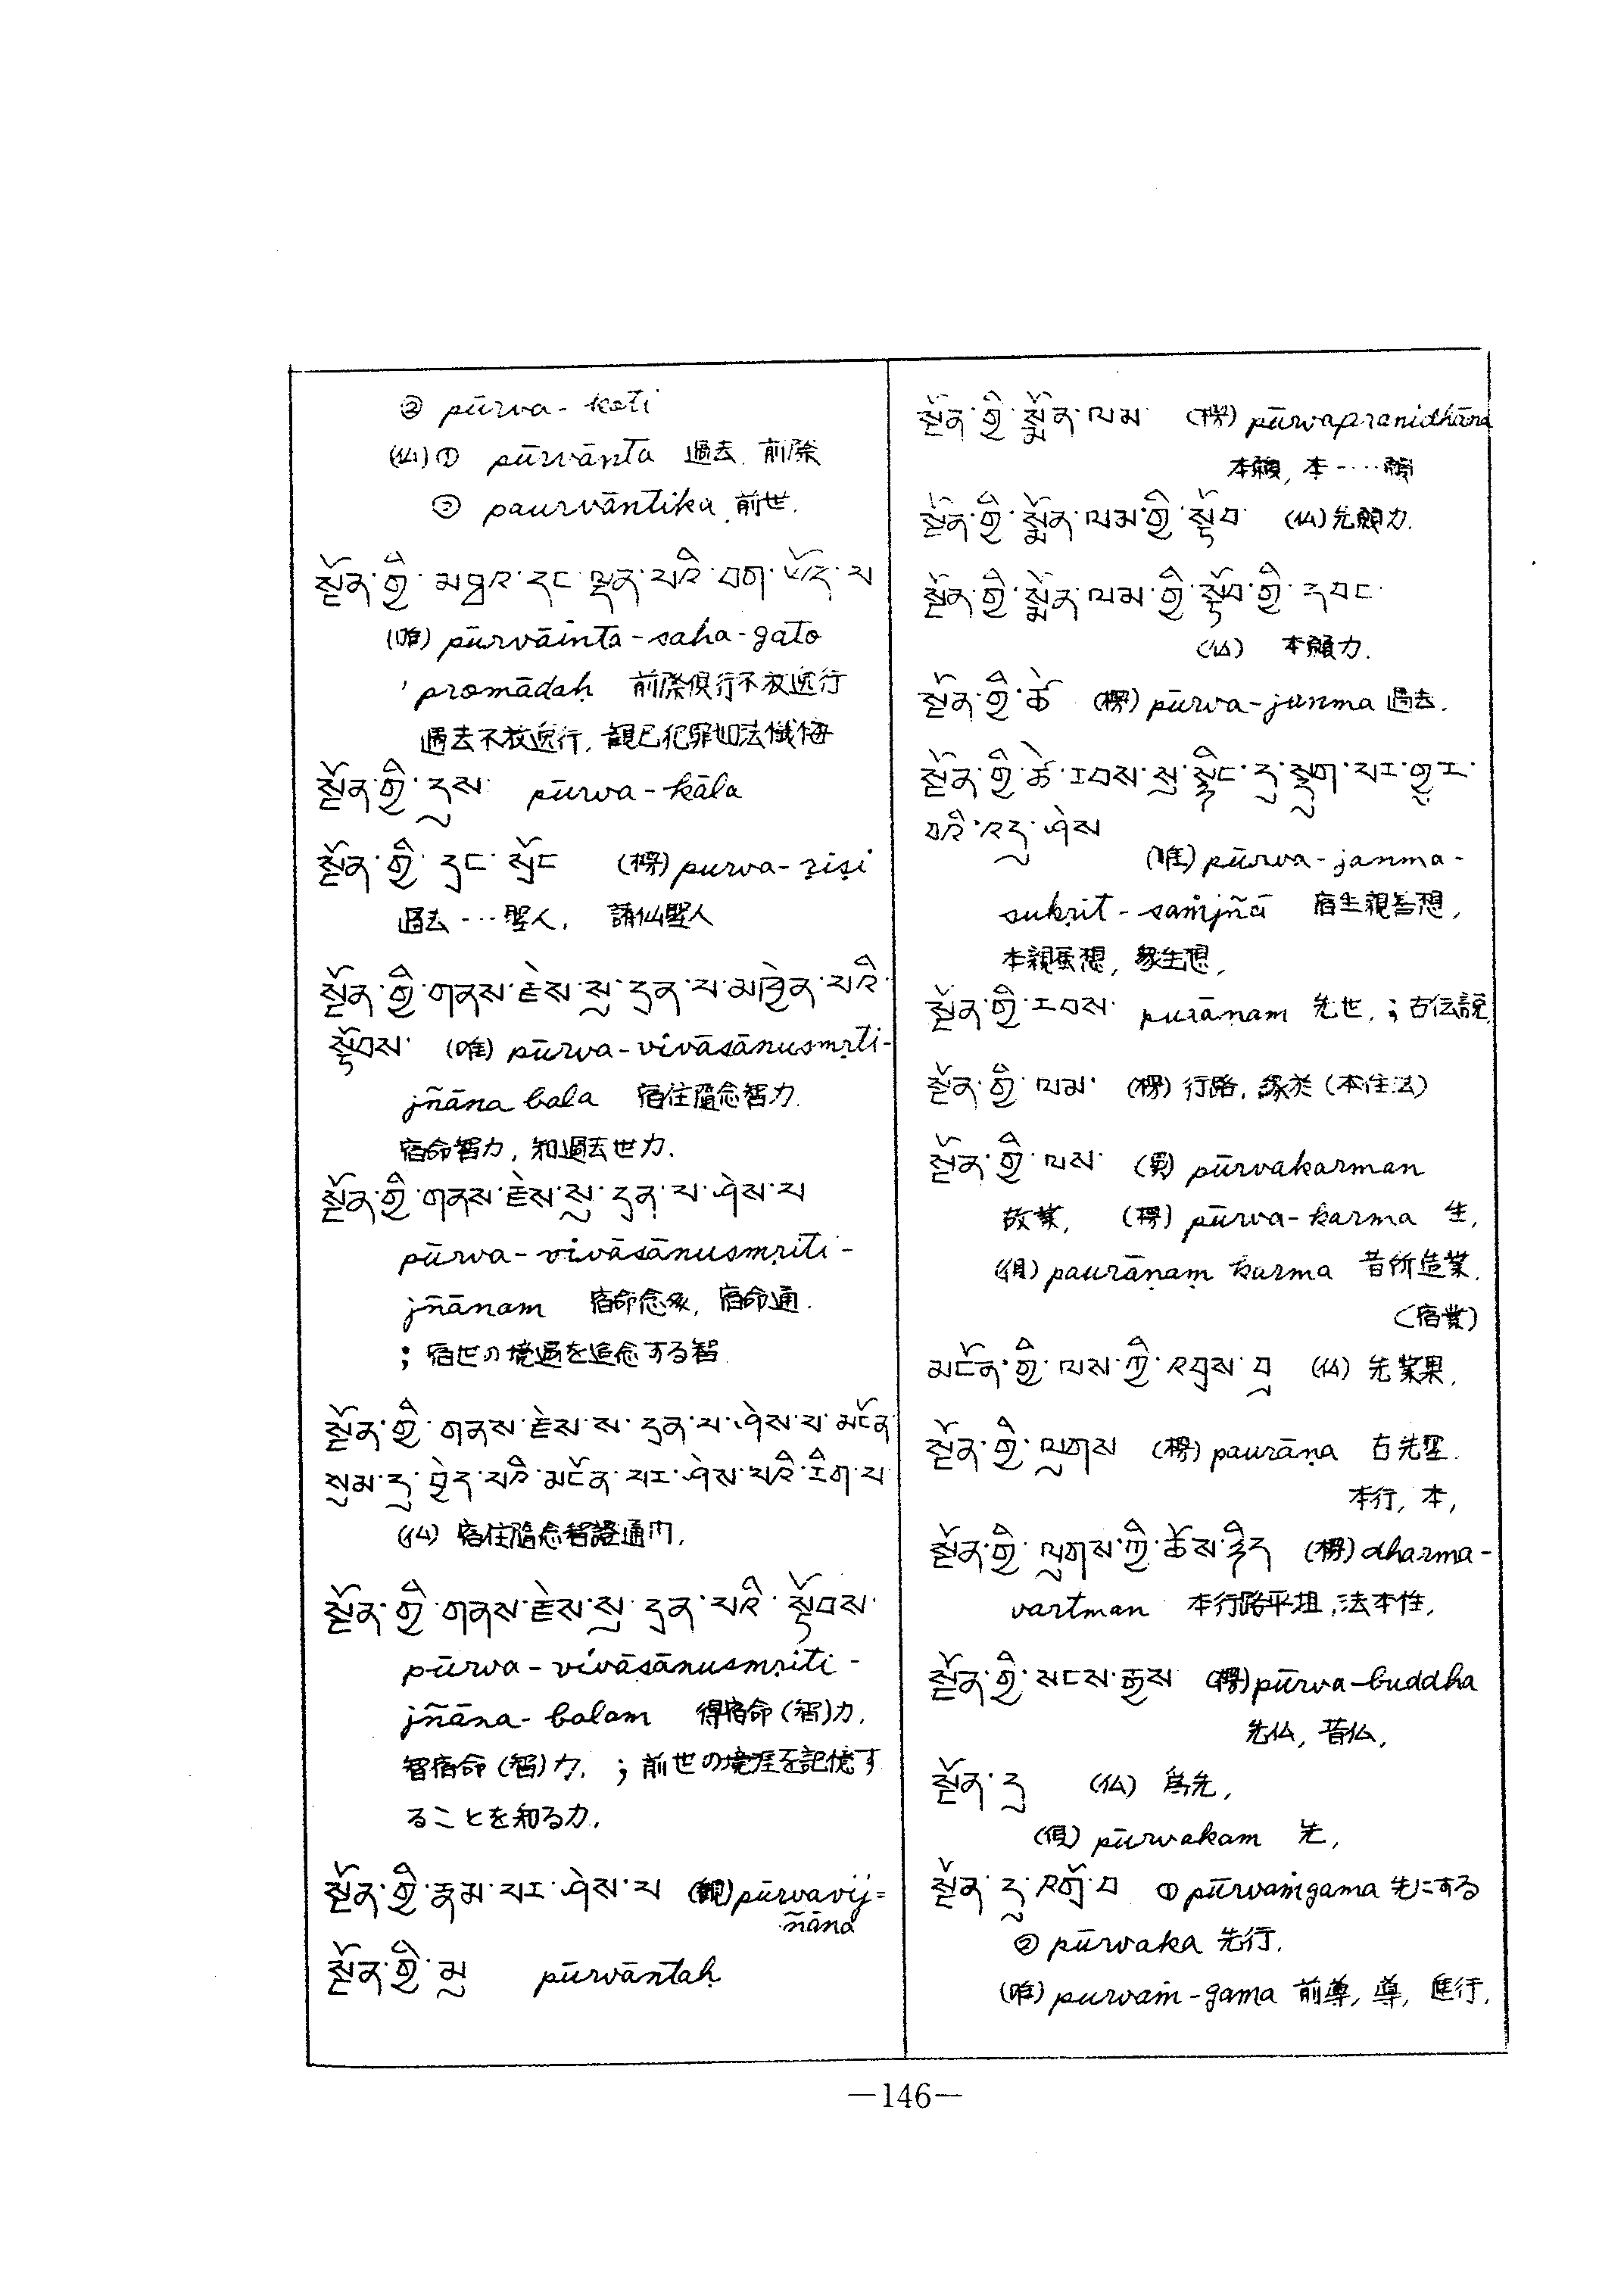 ② pūrva-koti
(仏)① pūrvānta 過去. 前際
② paurvāntika 前世.
སྔོན་གྱི་མཐའ་དང་ལྡན་པའི་བག་ཡོད་པ
(唯) pūrvāinta-saha-gato
promādaḥ 前際俱行不放逸行
過去不放逸行, 觀已犯罪如法懺悔
སྔོན་གྱི་དུས་ pūrva-kāla
སྔོན་གྱི་དྲང་སྲོང (楞) purva-ṛiṣi
過去…聖人, 諸仙聖人
སྔོན་གྱི་གནས་རྗེས་སུ་དྲན་པ་མཁྱེན་པའི་
སྟོབས་ (唯) pūrva-vivāsānusmṛti-
jñāna bala 宿住隨念智力.
宿命智力, 知過去世力.
སྔོན་གྱི་གནས་རྗེས་སུ་དྲན་པ་ཤེས་པ
pūrva-vivāsānusmṛiti-
jñānam 宿命念, 宿命通.
; 宿世の境遇を追念する智
སྔོན་གྱི་གནས་རྗེས་ས་དྲན་པ་ཤེས་པ་མངོན་
སུམ་དུ་བྱེད་པའི་མངོན་པར་ཤེས་པའི་རིག་པ
(仏) 宿住隨念智證通門.
སྔོན་གྱི་གནས་རྗེས་སུ་དྲན་པའི་སྟོབས་
pūrva-vivāsānusmṛiti-
jñāna-balam 得宿命(智)力,
智宿命(智)力. ; 前世の境涯を記憶す
ることを知る力.
སྔོན་གྱི་རྣམ་པར་ཤེས་པ (觀) pūrvavij=
ñāna
སྔོན་གྱི་མུ pūrvāntaḥ
སྔོན་གྱི་སྨོན་ལམ་ (楞) pūrvapranidhāna
本願, 本-…願
སྔོན་གྱི་སྨོན་ལམ་གྱི་སྟོབ་ (仏)先願力.
སྔོན་གྱི་སྨོན་ལམ་གྱི་སྟོབ་གྱི་དབང་
(仏) 本願力.
སྔོན་གྱི་ཚེ (楞) pūrva-janma 過去.
སྔོན་གྱི་ཚེ་རབས་སུ་སྙིང་དུ་སྡུག་པར་གྱུར་
བའི་འདུ་ཤེས
(唯) pūrva-janma-
sukṛit-saṁjñā 宿生親善想,
本親想, 衆生想,
སྔོན་གྱི་རབས་ purānam 先世, ; 古伝説
སྔོན་གྱི་ལམ་ (楞) 行路, 縁於(本住法)
སྔོན་གྱི་ལས་ pūrvakarman
故業, (楞) pūrva-karma 生,
(俱) paurāṇaṃ karma 昔所造業.
(宿業)
མངོན་གྱི་ལས་ཀྱི་འབྲས་བུ (仏) 先業果,
སྔོན་གྱི་ལུགས (楞) paurāṇa 古先聖.
本行, 本,
སྔོན་གྱི་ལུགས་ཀྱི་ཆོས་ཉིད (楞) dharma-
vartman 本行路平坦, 法本性,
སྔོན་གྱི་སངས་རྒྱས (楞) pūrva-buddha
先仏, 昔仏,
སྔོན་དུ (仏) 為先,
(俱) pūrvakam 先,
སྔོན་དུ་འགྲོ་བ ① pūrvaṁgama 先にする
② pūrvaka 先行.
(唯) purvaṁ-gama 前導, 導, 進行,
—146—